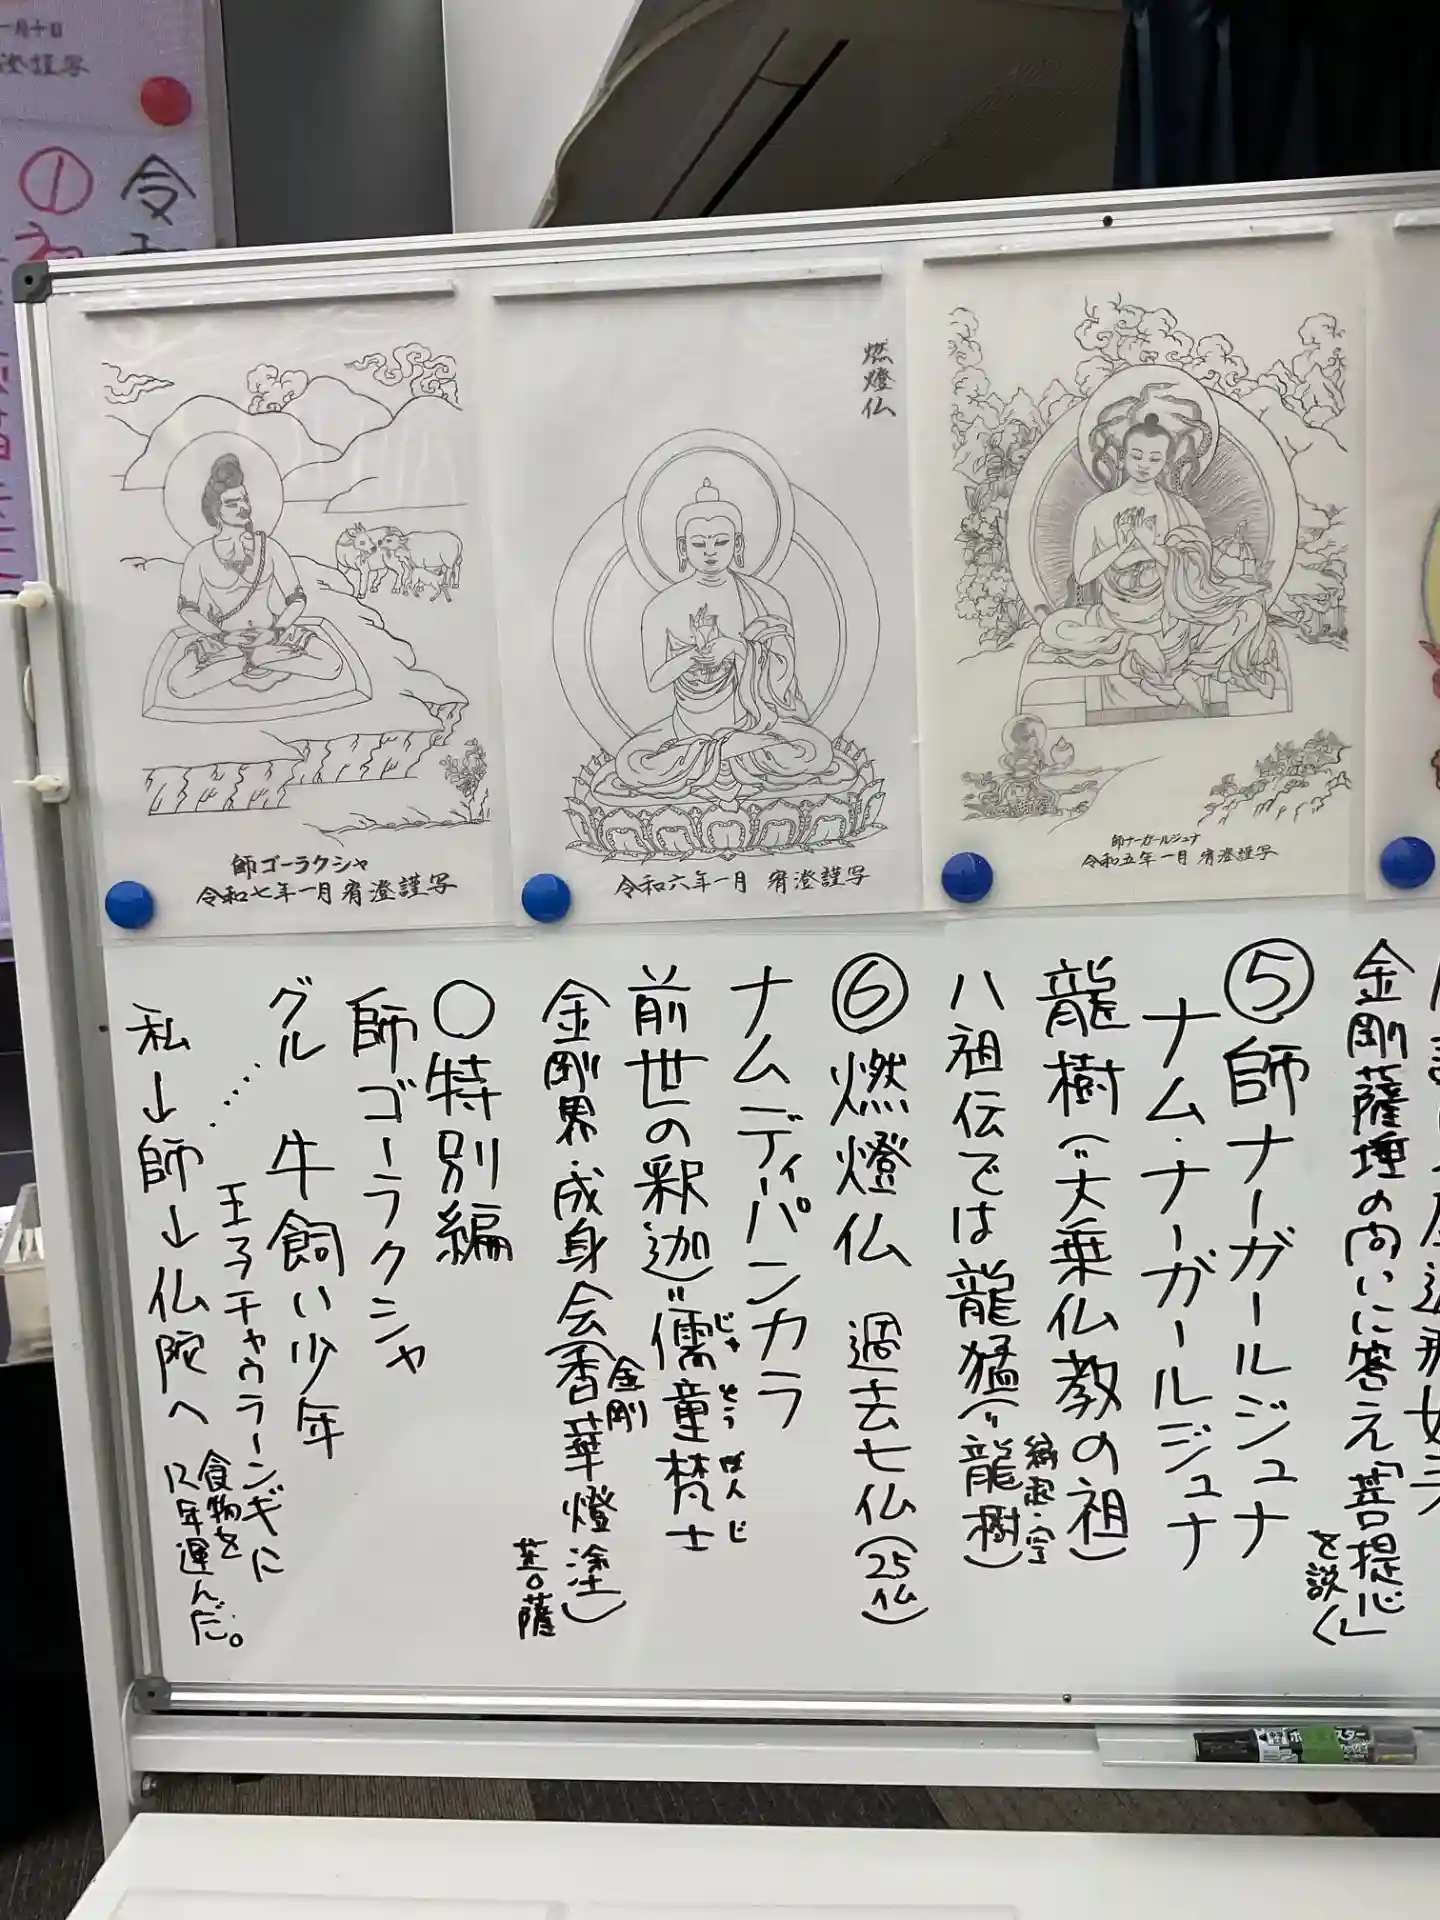 一月十日
澄謹写
令
①
燃燈仏
師ゴーラクシャ
令和七年一月 宥澄謹写
令和六年一月 宥澄謹写
師ナーガールジュナ
令和五年一月 宥澄謹写
金剛薩埵の問いに答え「菩提心」
を説く
⑤師ナーガールジュナ
ナム・ナーガールジュナ
龍樹(〃大乗仏教の祖)
縁起・空
八祖伝では龍猛(〃龍樹)
⑥燃燈仏 過去七仏(25仏)
ナムディーパンカラ
前世の釈迦〃儒童梵士
じゅ どう ぼん じ
金剛界・成身会(香華燈塗)
金剛
菩薩
○特別編
師ゴーラクシャ
グル 牛飼い少年
王子チャウランギに
食物を
12年運んだ。
私→師→仏陀へ